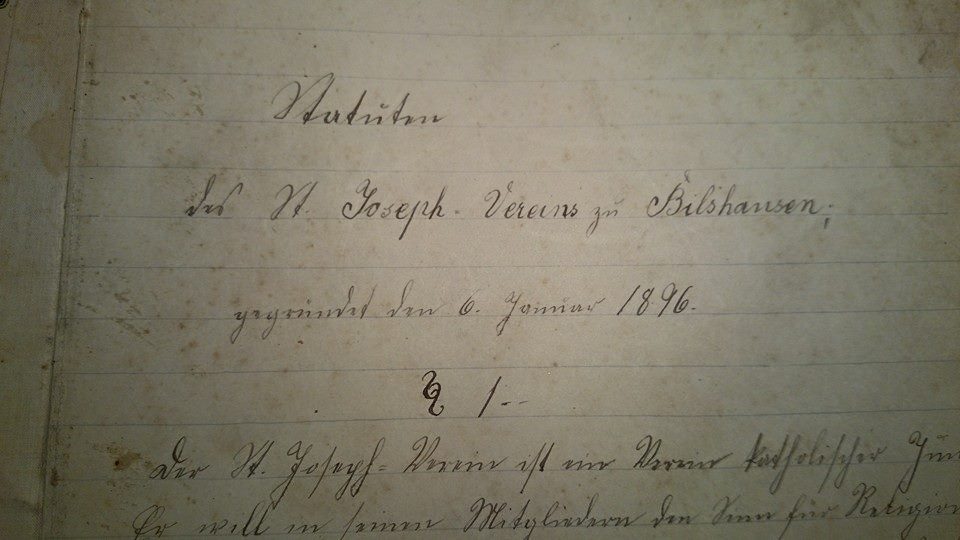 Statuten
des St. Joseph-Vereins zu Bilshausen;
gegründet den 6. Januar 1896.
§ 1.--
Der St. Joseph-Verein ist ein Verein katholischer Jün
Er will in seinen Mitgliedern den Sinn für Religion